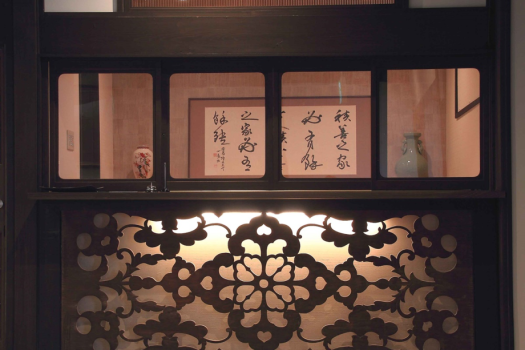 積善之家
必有餘
之家必有
餘殃